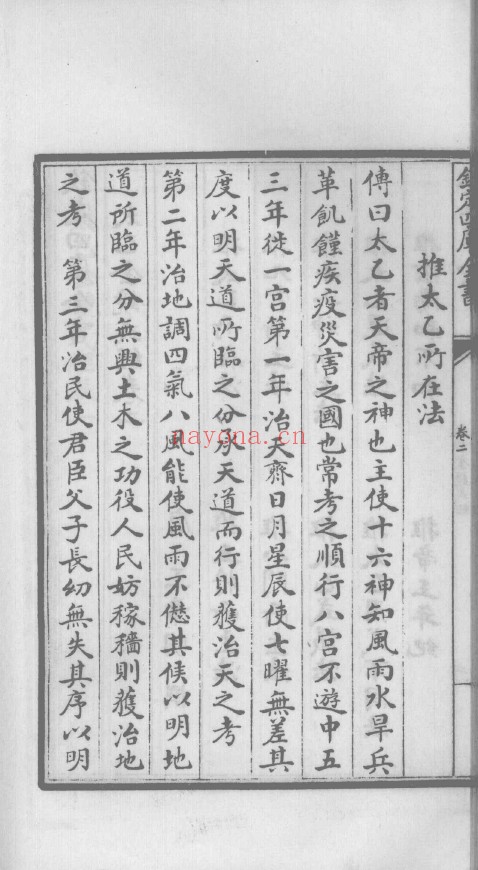 欽定四庫全書
卷二
推太乙所在法
傳曰太乙者天帝之神也主使十六神知風雨水旱兵
革飢饉疾疫災害之國也常考之順行八宮不遊中五
三年徙一宮第一年治天齊日月星辰使七曜無差其
度以明天道所臨之分承天道而行則獲治天之考
第二年治地調四氣八風能使風雨不愆其候以明地
道所臨之分無興土木之功役人民妨稼穡則獲治地
之考 第三年治民使君臣父子長幼無失其序以明
nayona.cn